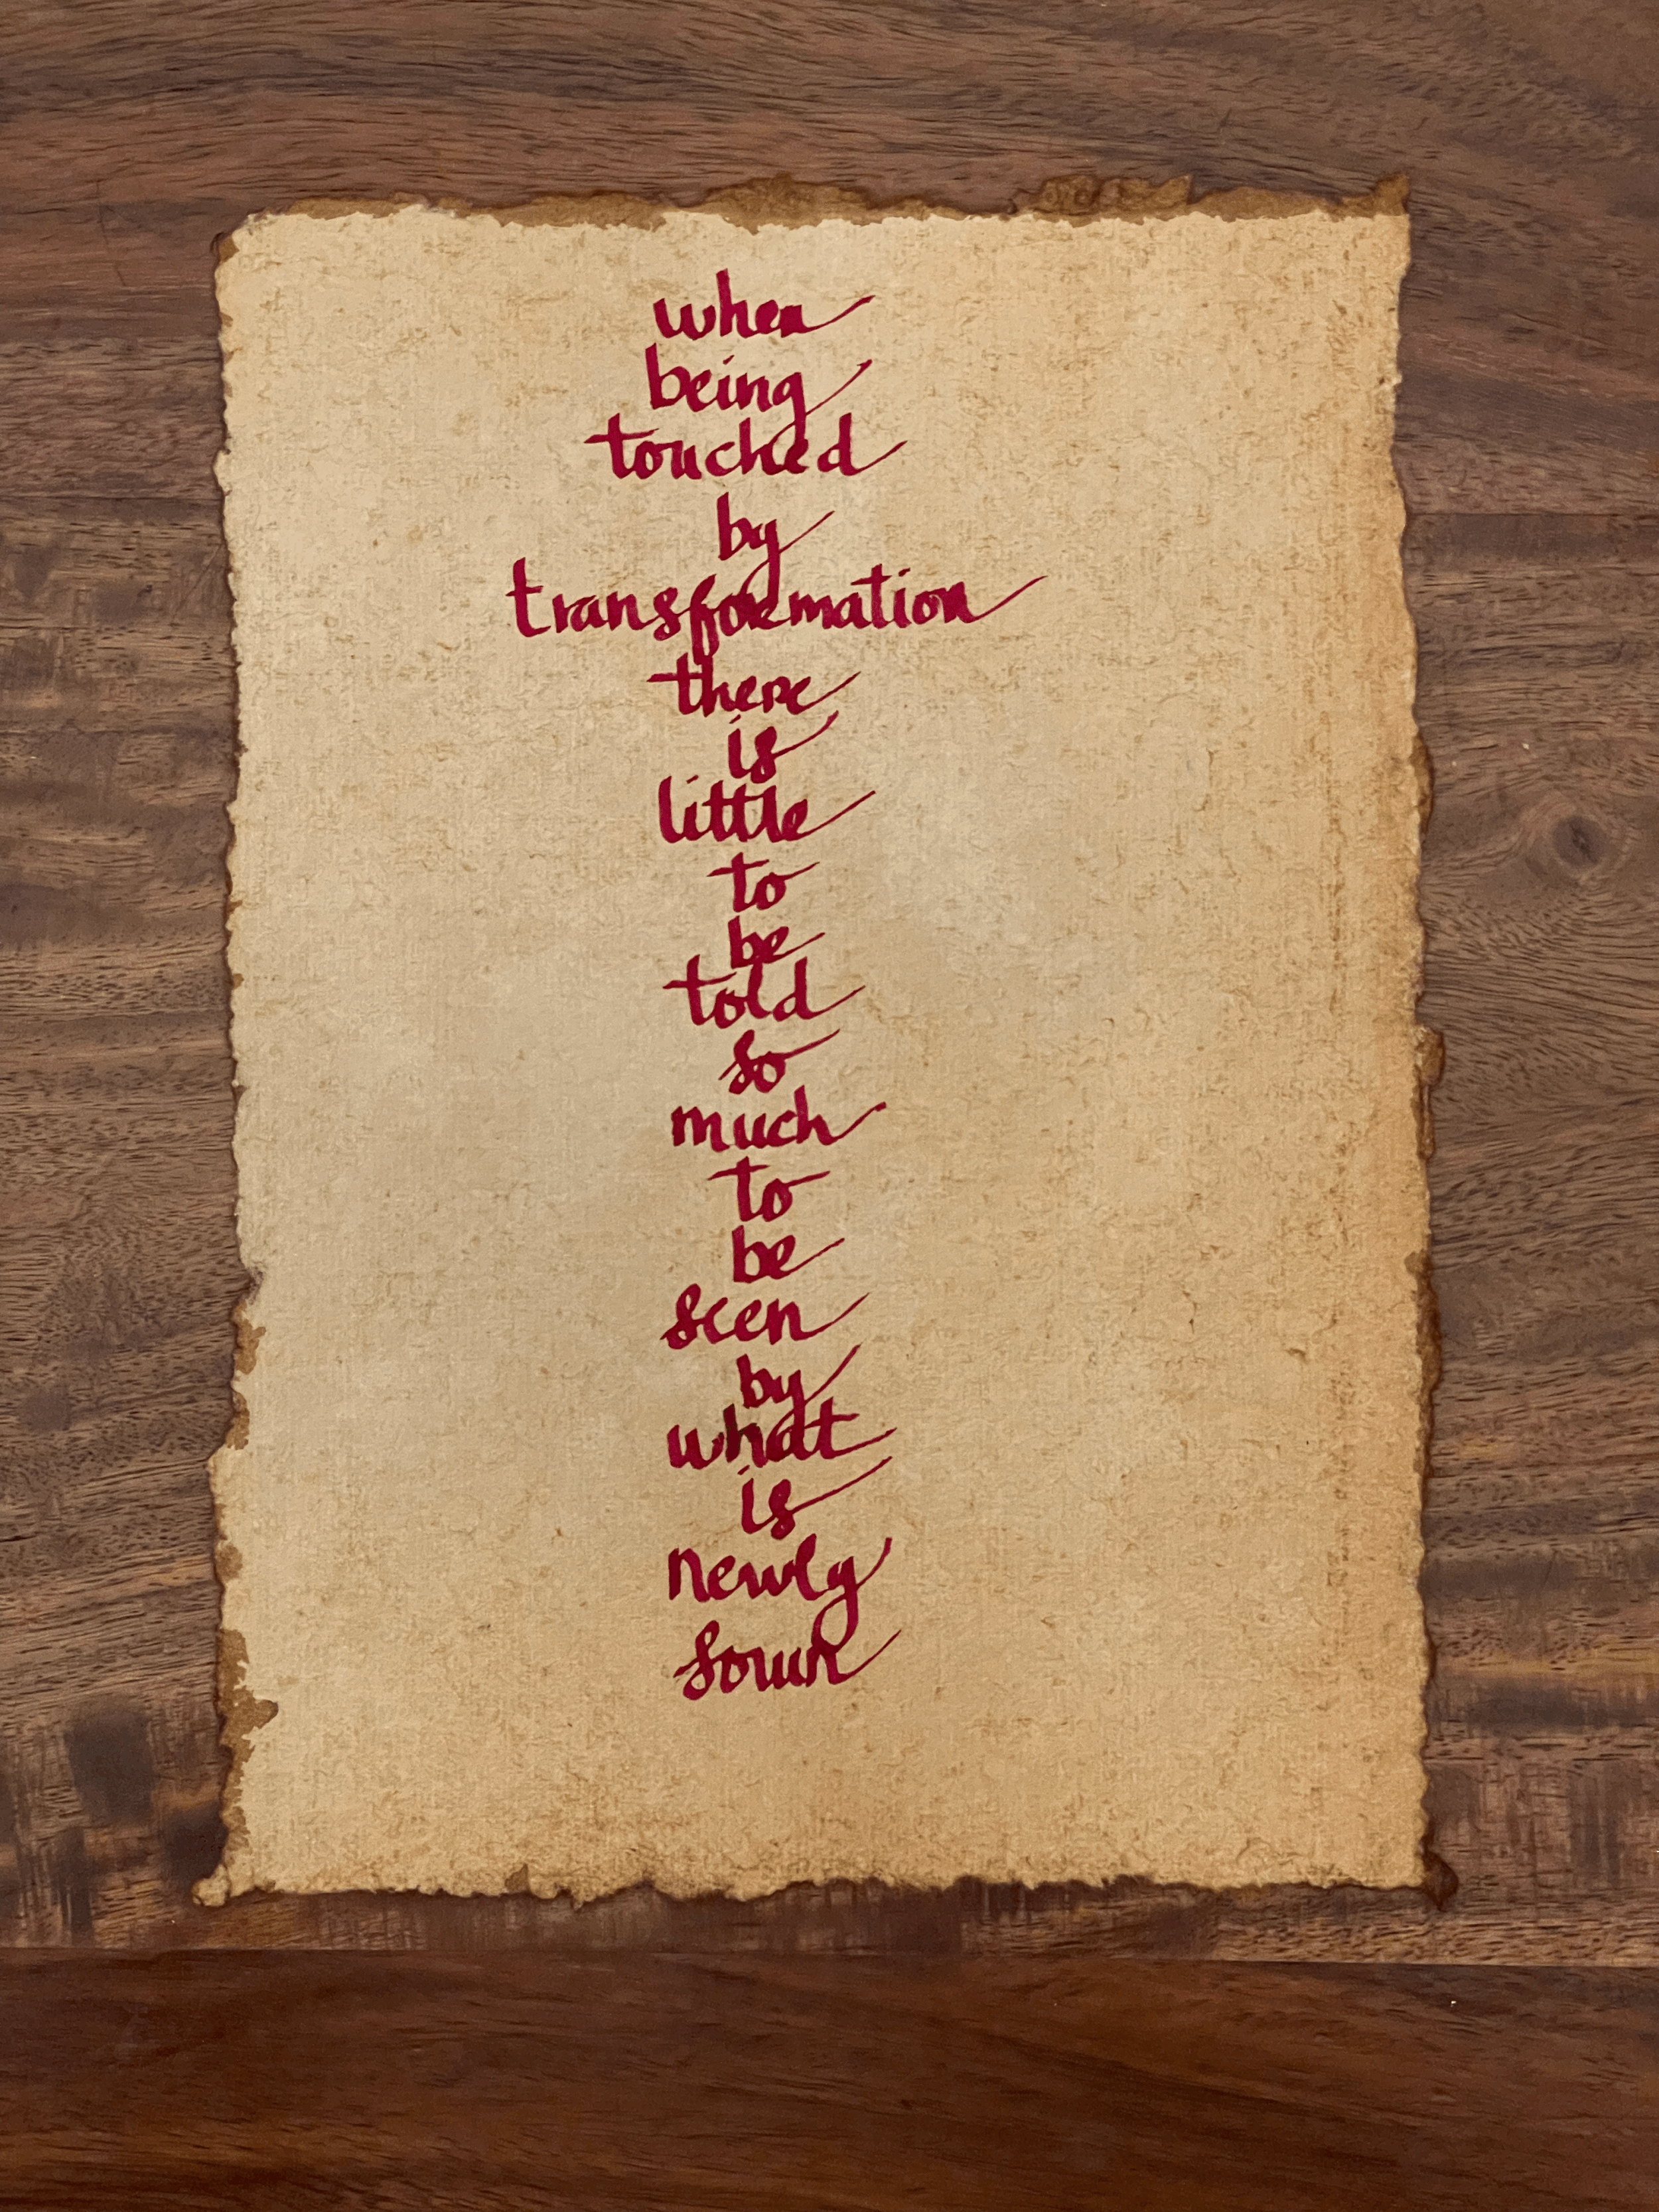 when
being
touched
by
transformation
there
is
little
to
be
told
so
much
to
be
seen
by
what
is
newly
sown